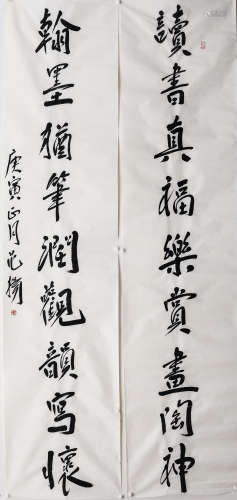 讀書真福樂賞畫陶神
翰墨猶筆潤觀韻寫懷
庚寅正月范衛